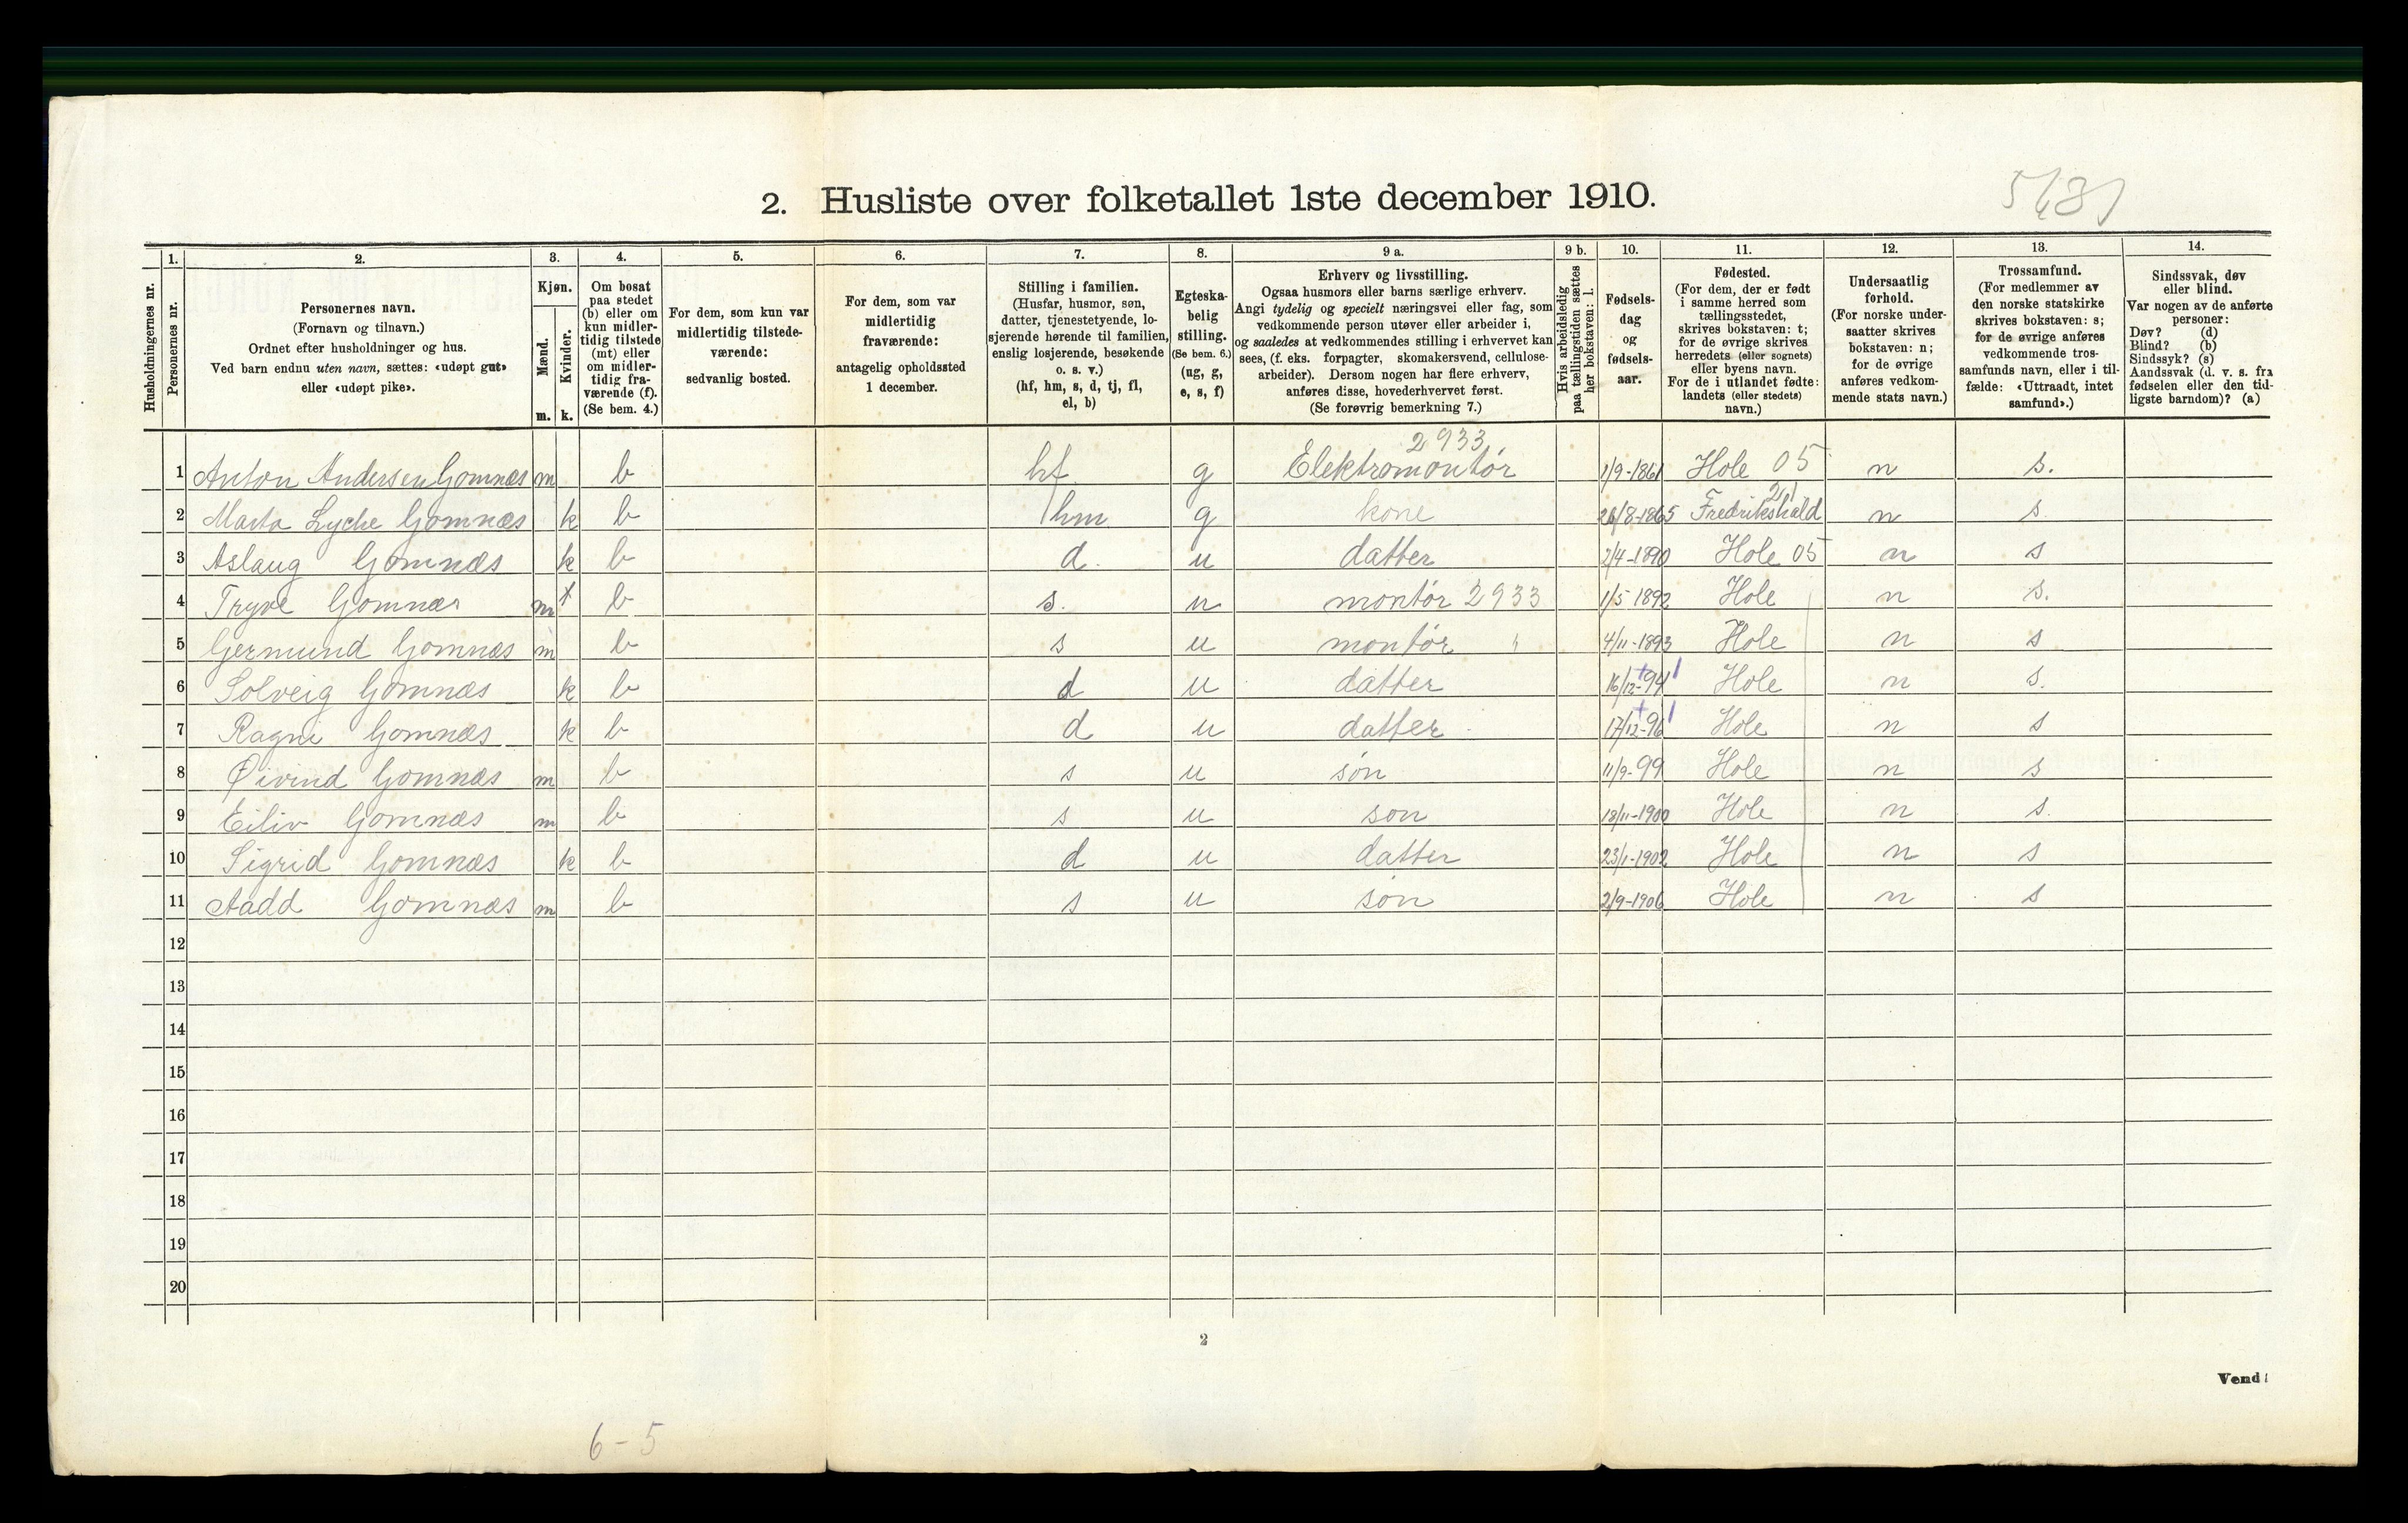 2. Husliste over folketallet 1ste december 1910.
Husholdningernes nr.
1.
Personernes nr.
2.
Personernes navn.
(Fornavn og tilnavn.)
Ordnet efter husholdninger og hus.
Ved barn endnu uten navn, sættes: «udøpt gut»
eller «udøpt pike».
3.
Kjøn.
Mænd.
m.
Kvinder.
k.
4.
Om bosat
paa stedet
(b) eller om
kun midler-
tidig tilstede
(mt) eller
om midler-
tidig fra-
værende (f).
(Se bem. 4.)
5.
For dem, som kun var
midlertidig tilstede-
værende:
sedvanlig bosted.
6.
For dem, som var
midlertidig
fraværende:
antagelig opholdssted
1 december.
7.
Stilling i familien.
(Husfar, husmor, søn,
datter, tjenestetyende, lo-
sjerende hørende til familien,
enslig losjerende, besøkende
o. s. v.)
(hf, hm, s, d, tj, fl,
el, b)
8.
Egteska-
belig
stilling.
(Se bem. 6.)
(ug, g,
e, s, f)
9 a.
Erhverv og livsstilling.
Ogsaa husmors eller barns særlige erhverv.
Angi tydelig og specielt næringsvei eller fag, som
vedkommende person utøver eller arbeider i,
og saaledes at vedkommendes stilling i erhvervet kan
sees, (f. eks. forpagter, skomakersvend, cellulose-
arbeider). Dersom nogen har flere erhverv,
anføres disse, hovederhvervet først.
(Se forøvrig bemerkning 7.)
9 b.
Hvis arbeidsledig
paa tællingstiden sættes
her bokstaven: l.
10.
Fødsels-
dag
og
fødsels-
aar.
11.
Fødested.
(For dem, der er født
i samme herred som
tællingsstedet,
skrives bokstaven: t;
for de øvrige skrives
herredets (eller sognets)
eller byens navn.
For de i utlandet fødte:
landets (eller stedets)
navn.)
12.
Undersaatlig
forhold.
(For norske under-
saatter skrives
bokstaven: n;
for de øvrige
anføres vedkom-
mende stats navn.)
13.
Trossamfund.
(For medlemmer av
den norske statskirke
skrives bokstaven: s;
for de øvrige anføres
vedkommende tros-
samfunds navn, eller i til-
fælde: «Uttraadt, intet
samfund».)
14.
Sindssvak, døv
eller blind.
Var nogen av de anførte
personer:
Døv? (d)
Blind? (b)
Sindssyk? (s)
Aandssvak (d. v. s. fra
fødselen eller den tid-
ligste barndom)? (a)
2933
1 Anton Andersen Gomnæs m b hf g Elektromontör 1/9-1861 Hole 05 n s.
21
2 Marta Lyche Gomnæs k b hm g kone 26/8-1865 Fredrikshald n s
3 Aslaug Gomnæs k b d. u datter 2/4-1890 Hole 05 n s
4 Trygve Gomnæs m b s. u montör 2933 1/5-1892 Hole n s.
5 Germund Gomnæs m b s u montör 4/11-1893 Hole n s
6 Solveig Gomnæs k b d u datter 16/12-94 Hole n s.
7 Ragni Gomnæs k b d u datter 17/12-96 Hole n s
8 Øivind Gomnæs m b s u søn 11/9-99 Hole n s
9 Eiliv Gomnæs m b s u son 18/11-1900 Hole n s.
10 Sigrid Gomnæs k b d u datter 23/1-1902 Hole n s
11 Aadd Gomnæs m b s u søn 2/9-1906 Hole n s
12
13
14
15
16
17
18
19
20
2
Vend!
6-5